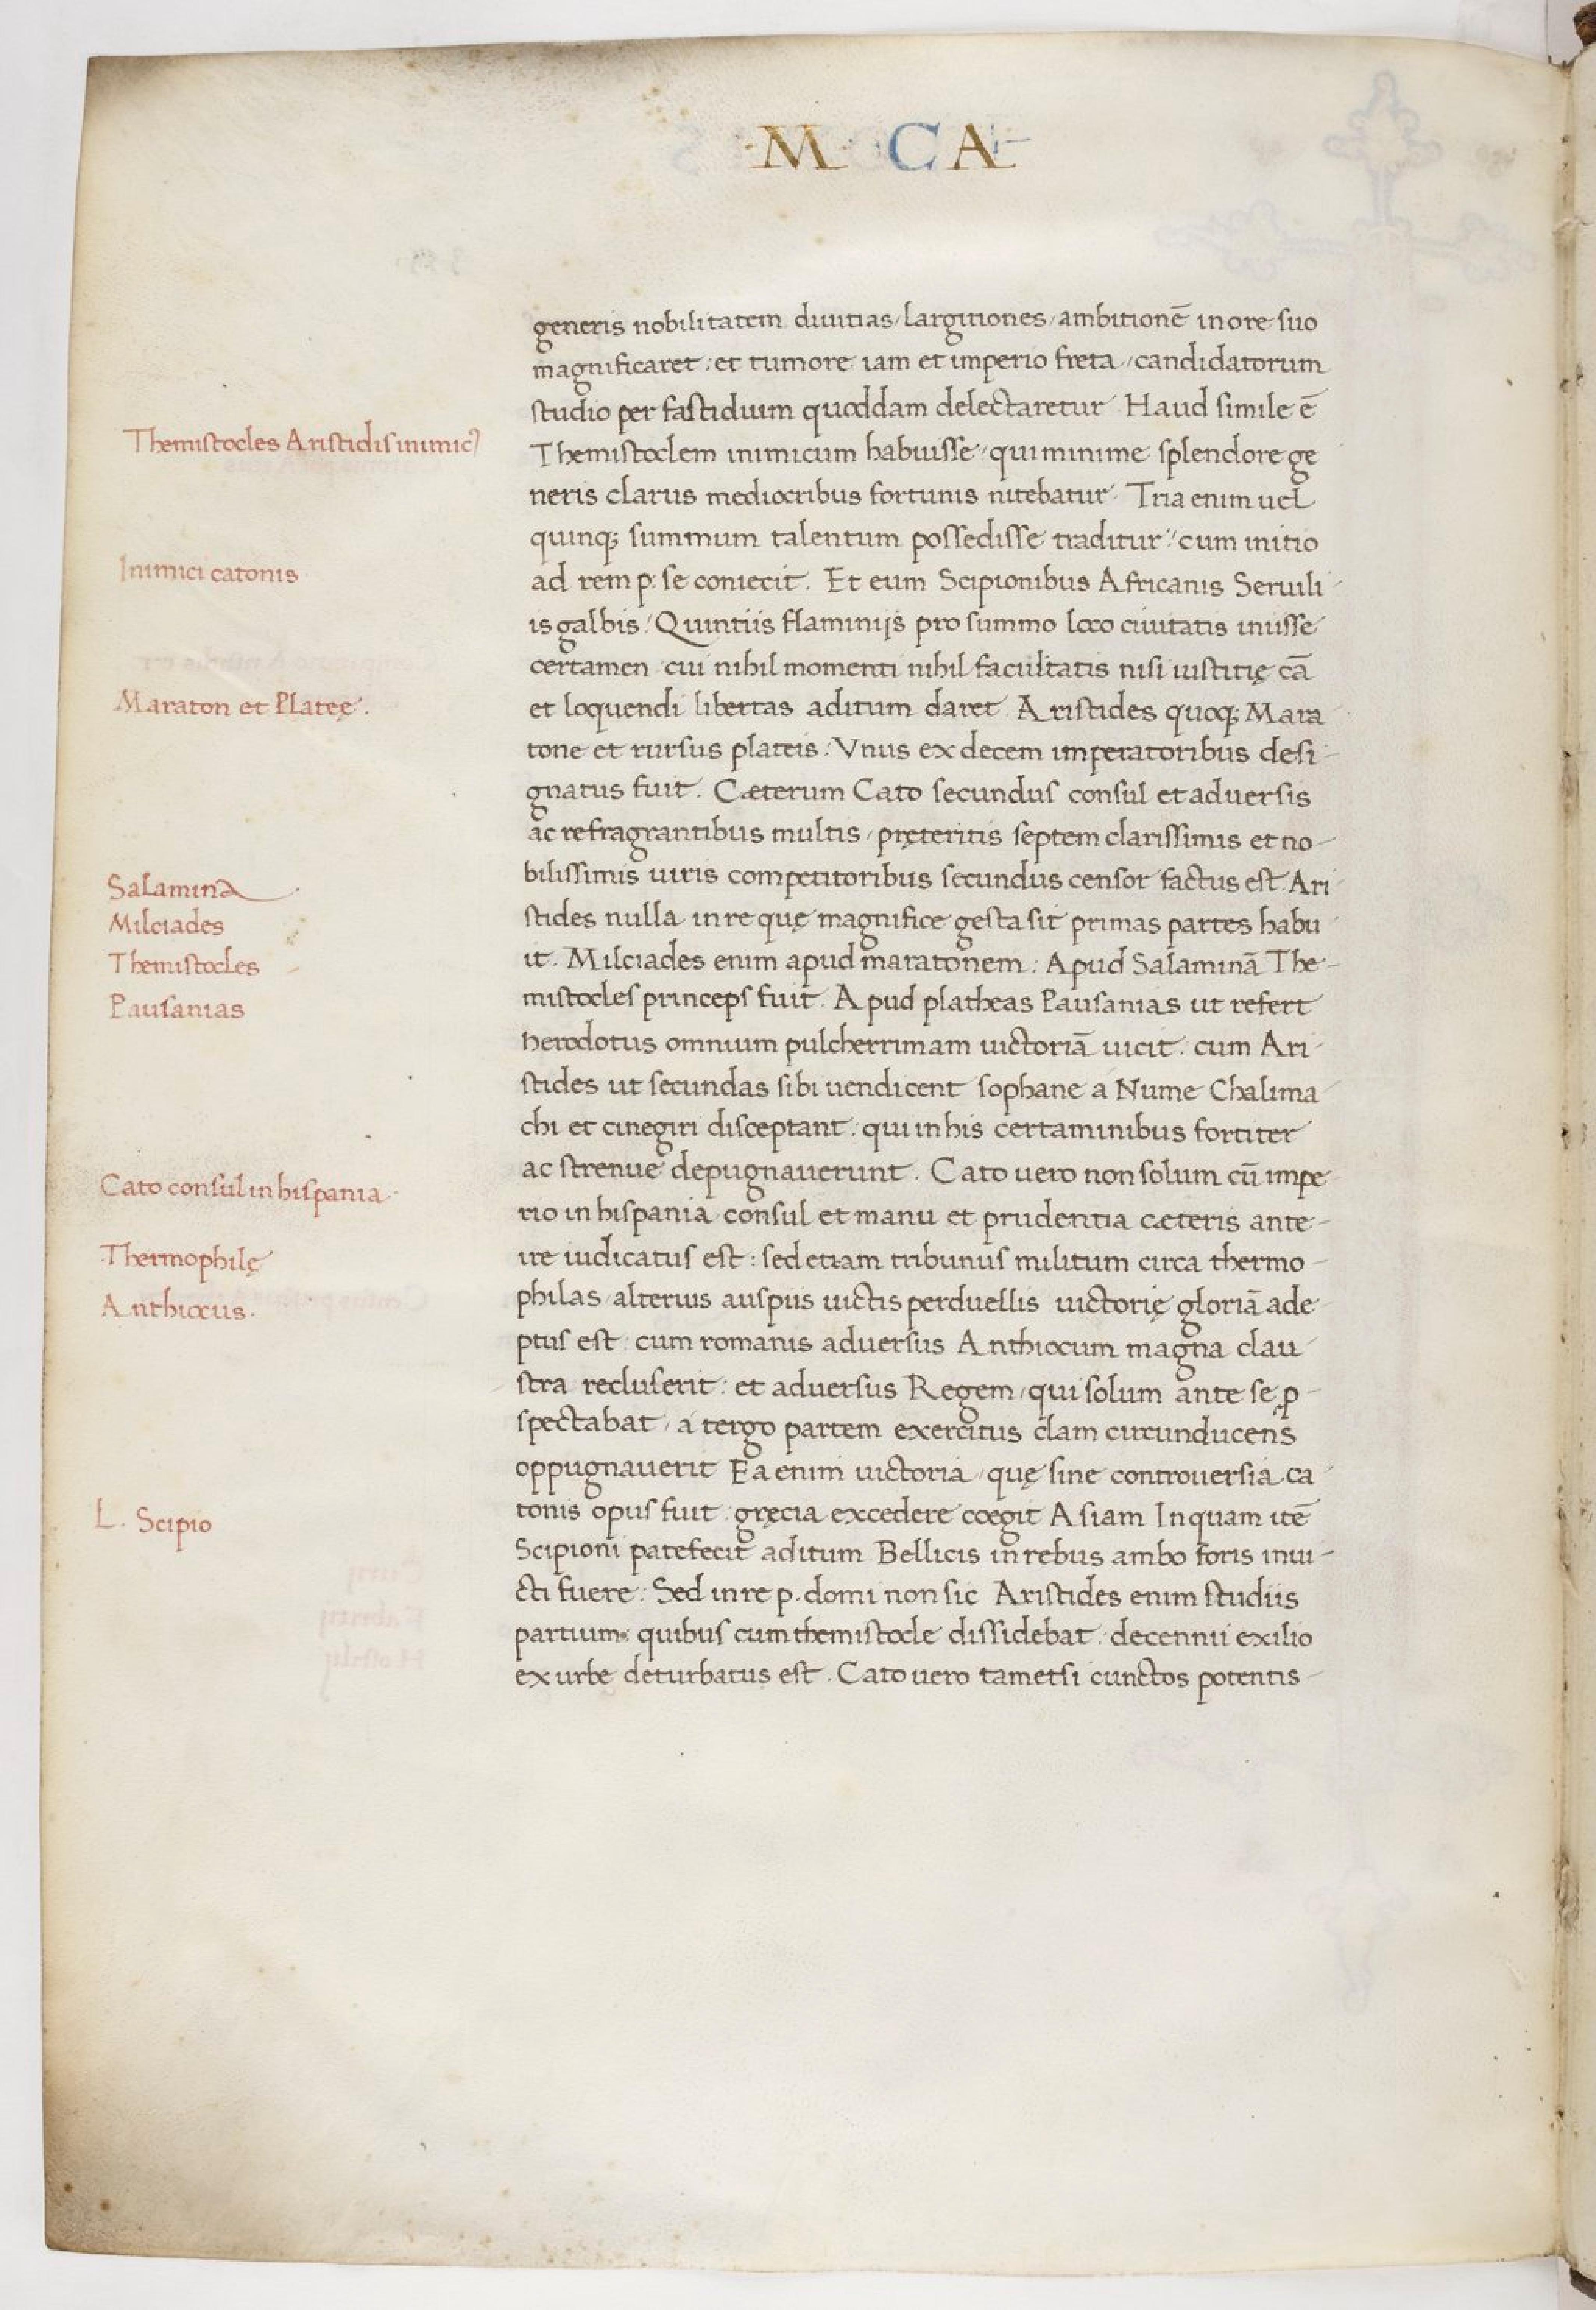 M CA
generis nobilitatem diuitias largitiones ambitionē in ore suo
magnificaret: et tumore iam et imperio freta, candidatorum
studio per fastidium quoddam delectaretur Haud simile ē
Themistocles Aristidis inimicꝰ
Themistoclem inimicum habuisse, qui minime splendore ge
neris clarus mediocribus fortunis nitebatur. Tria enim uel
quinq; summum talentum possedisse traditur: cum initio
Inimici catonis
ad rem p: se coniecit. Et eum Scipionibus Africanis Seruili-
is galbis: Quintiis flaminijs pro summo loco ciuitatis iniisse
certamen cui nihil momenti nihil facultatis nisi iustitię cā
Maraton et Plateę.
et loquendi libertas aditum daret Aristides quoq; Mara
tone et rursus plateis: Vnus ex decem imperatoribus desi-
gnatus fuit. Cæterum Cato secundus consul et aduersis
ac refragrantibus multis, pręteritis septem clarissimis et no-
bilissimis uiris competitoribus secundus censor factus est. Ari-
Salamina
stides nulla in re quę magnifice gesta sit primas partes habu
Milciades
it. Milciades enim apud maratonem: Apud Salaminā The-
Themistocles
mistocles princeps fuit. Apud platheas Pausanias ut refert
Pausanias
herodotus omnium pulcherrimam uictoriā uicit: cum Ari-
stides ut secundas sibi uendicent sophane a Nume Chalima
chi et cinegiri disceptant: qui in his certaminibus fortiter
ac strenue depugnauerunt. Cato uero non solum cū impe-
Cato consul in hispania.
rio in hispania consul et manu et prudentia cæteris ante-
Thermophilę
ire iudicatus est: sed etiam tribunus militum circa thermo-
philas alterius auspiis uictis perduellis uictorię gloriā ade-
Anthiocus.
ptus est: cum romanis aduersus Anthiocum magna clau
stra recluserit: et aduersus Regem, qui solum ante se p-
spectabat, a tergo partem exercitus clam circunducens
oppugnauerit Ea enim uictoria, quę sine controuersia ca
L. Scipio
tonis opus fuit gręcia excedere coegit Asiam Inquam itē
Scipioni patefecit aditum Bellicis in rebus ambo foris inui-
cti fuere: Sed in re p. domi non sic Aristides enim studiis
partium quibus cum themistocle dissidebat: decennii exilio
ex urbe deturbatus est. Cato uero tametsi cunctos potentis-